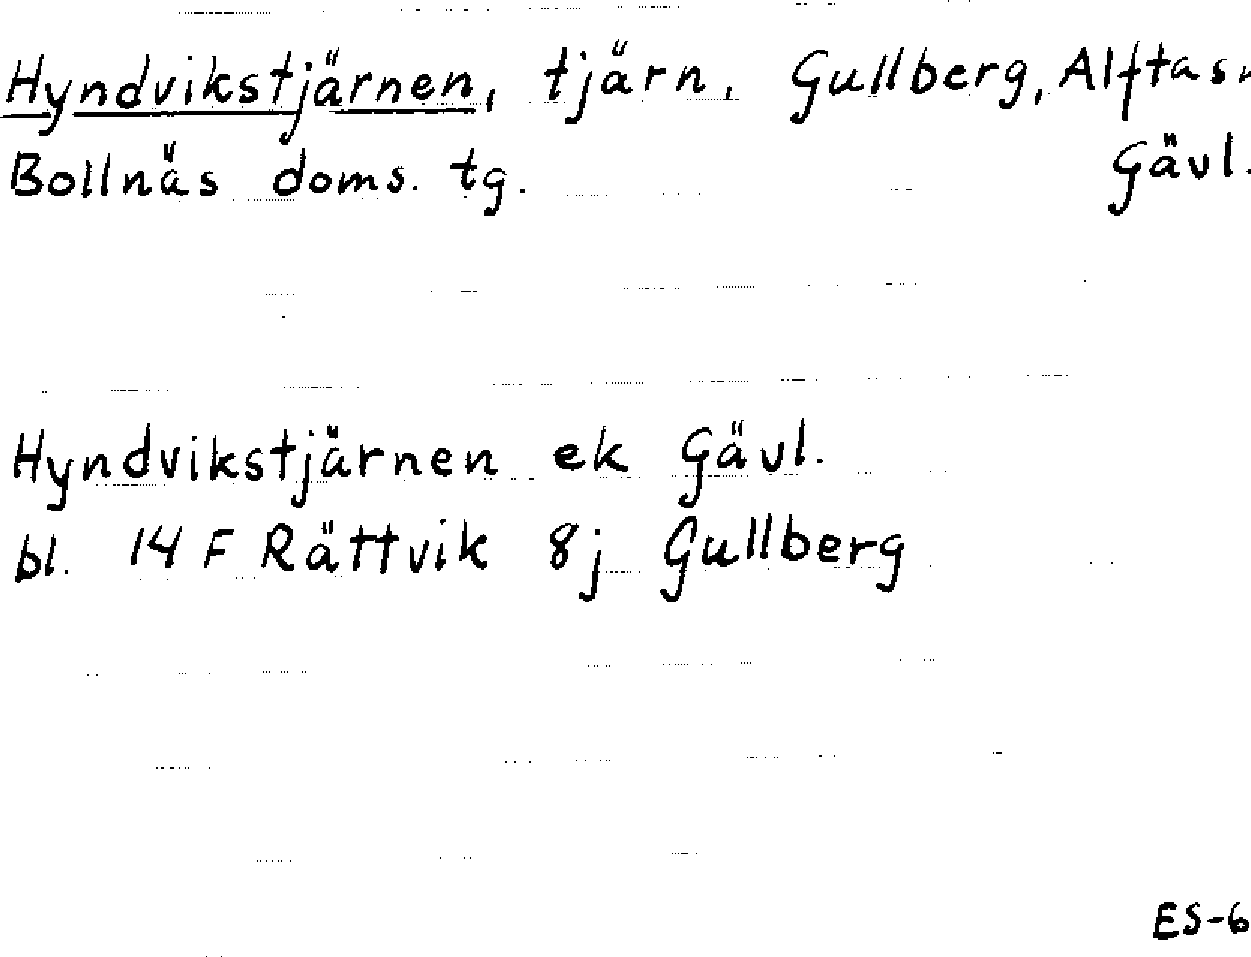 Hyndvikstjärnen, tjärn, Gullberg, Alfta
Bollnäs doms. tg. Gävl.
Hyndvikstjärnen ek Gävl.
bl. 14 F Rättvik 8j Gullberg
ES-6